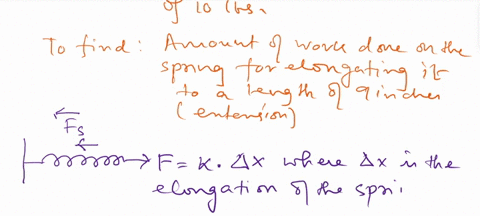 of 10 lbs.
To find: Amount of work done on the
spring for elongating it
to a length of 9 inches
(extension)
Fs
F = K . Δx where Δx is the
elongation of the spri